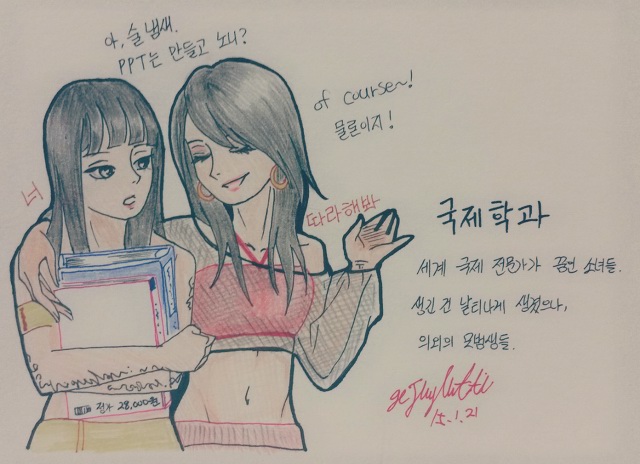 아, 술 냄새.
PPT는 만들고 노니?
of course~!
물론이지!
너
따라해봐
국제학과
세계 국제 전문가가 꿈인 소녀들.
생긴 건 날티나게 생겼으나,
의외의 모범생들.
15.1.21
정가 28,000원